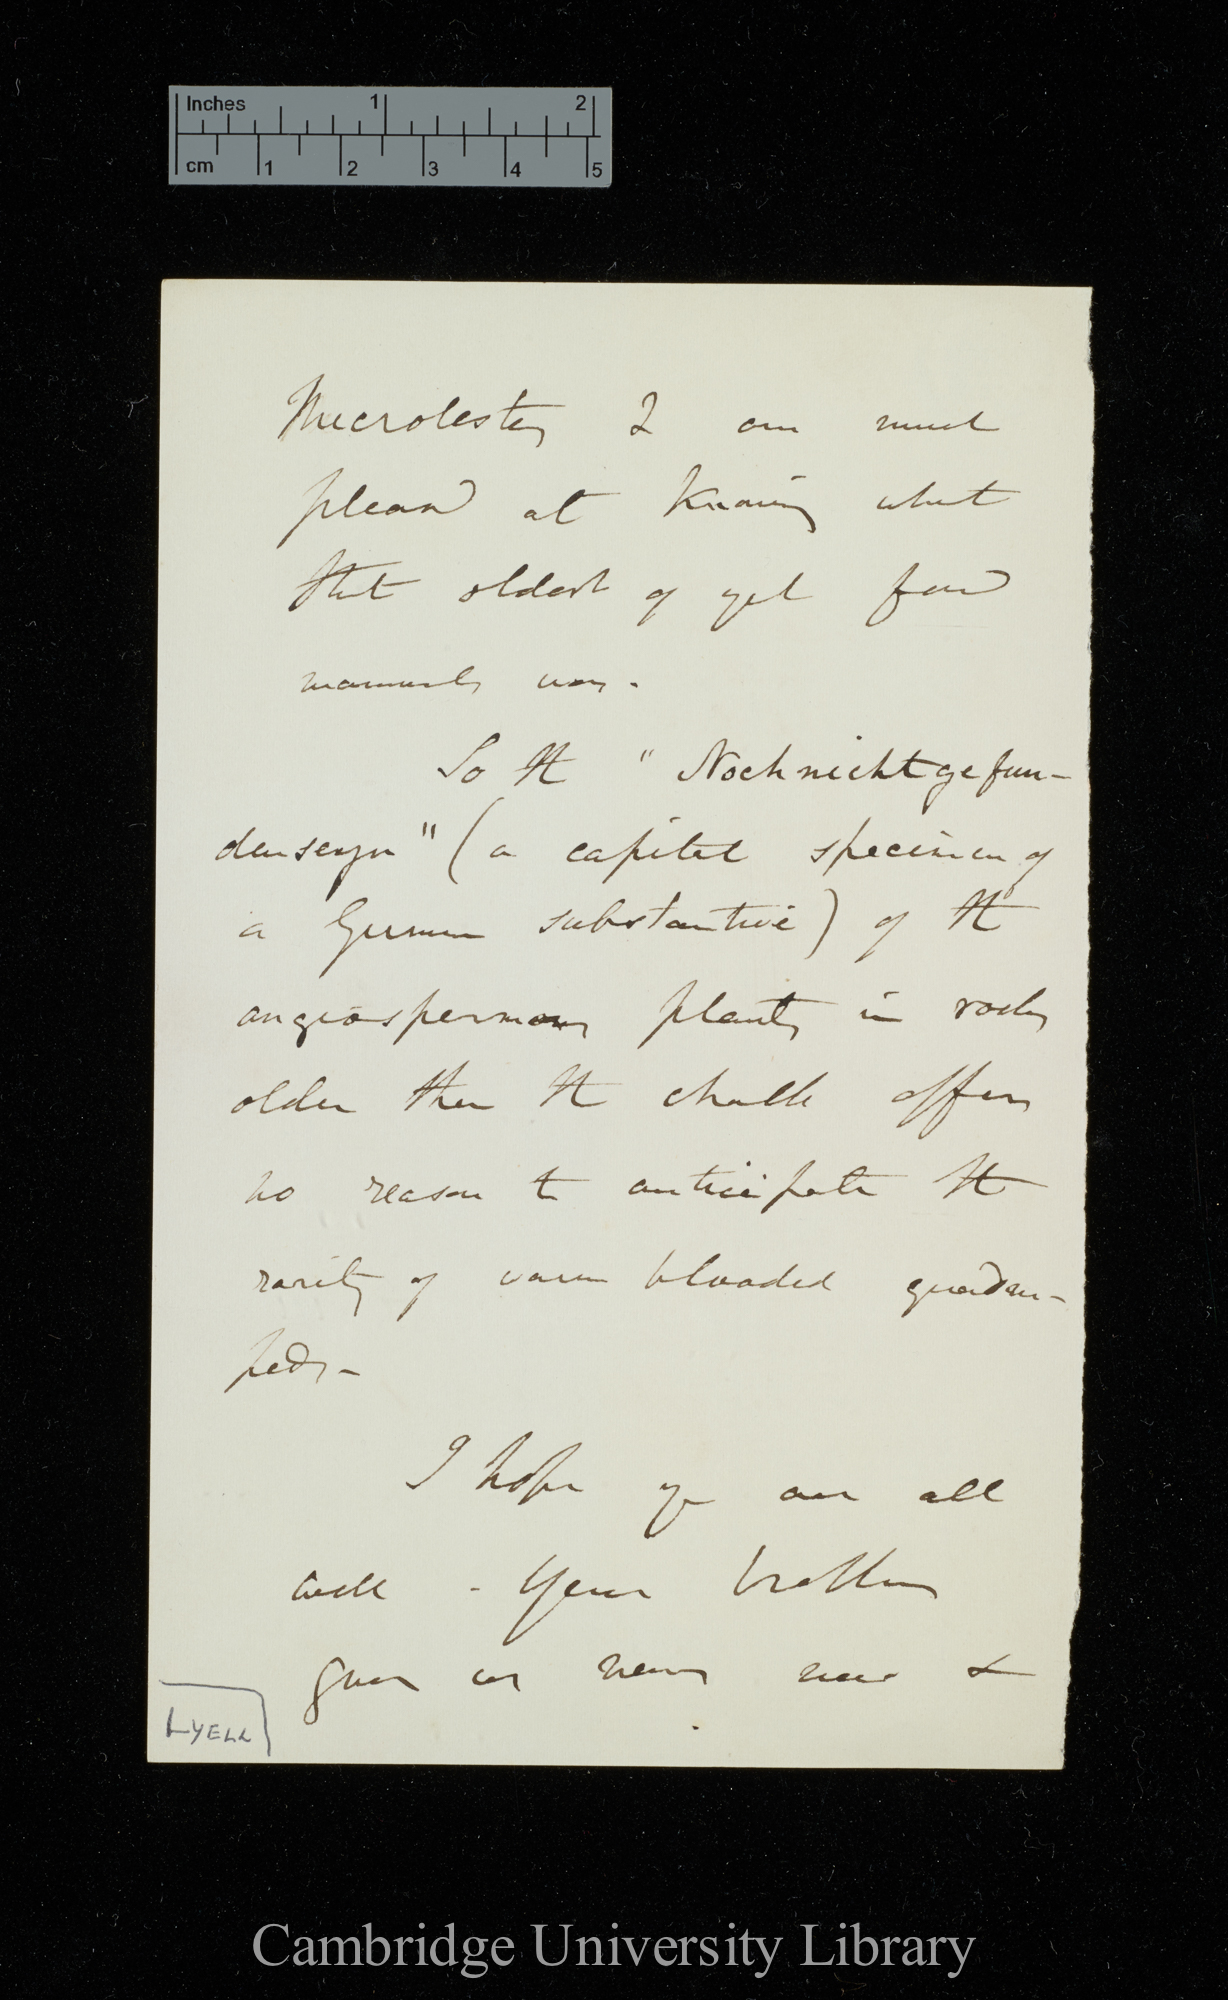 Inches 1 2
cm 1 2 3 4 5
Microlestes I am much
pleased at knowing what
that oldest of yet found
mammals was.
So the "Nochnichtgefun-
denseyn" (a capital specimen of
a German substantive) of the
angiospermous plants in rocks
older than the chalk offers
no reason to anticipate the
rarity of warm blooded quadru-
peds-
I hope you are all
well - Your brother
gives us news now &
LYELL
Cambridge University Library